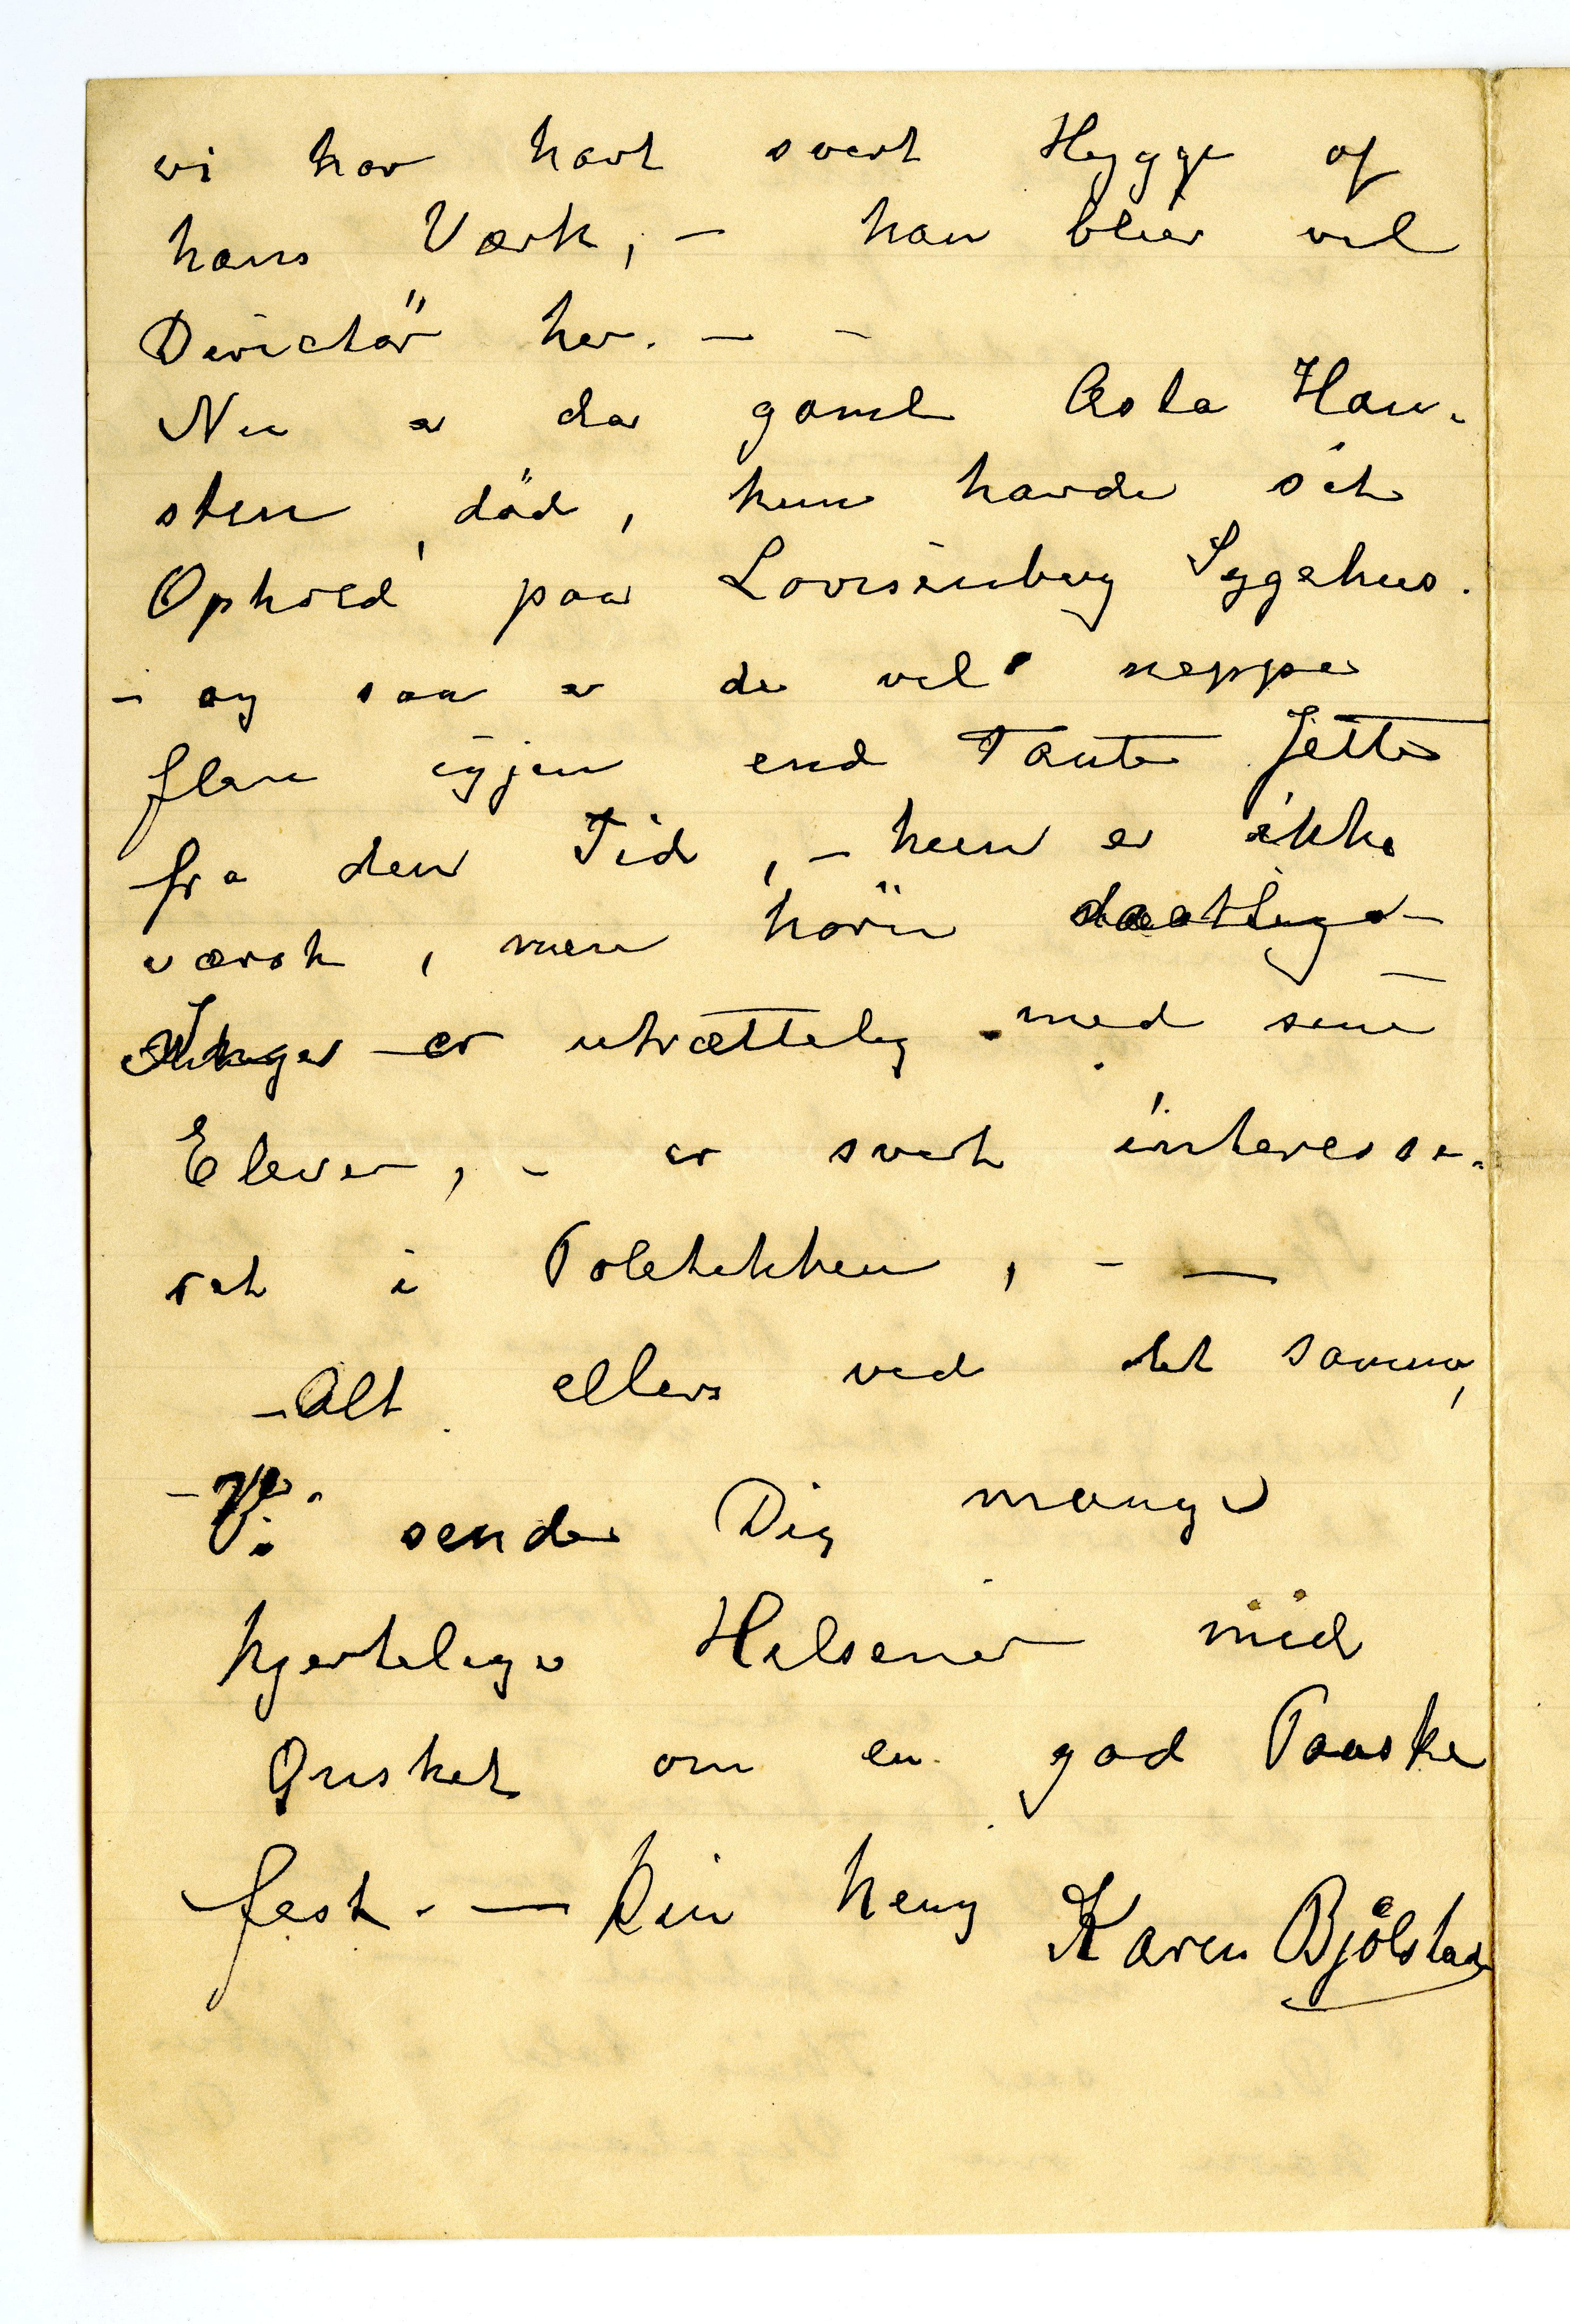 vi har havt svert Hygge af
hans Værk, – han blier vel
Directör her. – –
Nu er da gamle Asta Han-
sten död, hun havde sit
Ophold paa Lovisenberg Sygehus.
– og saa er der vel neppe
flere igjen end Tante Jette
fra den Tid, – hun er ikke
værst, men hörer daatligt –
Inger er utrættelig med sine
Elever, – er svert interesse-
ret i Poletikken, – —
– Alt ellers ved det samme,
– Vi sender Dig mange
hjertelige Hilsener med
Ønsket om en god Paaske
fest. — Din heng Karen Bjölstad